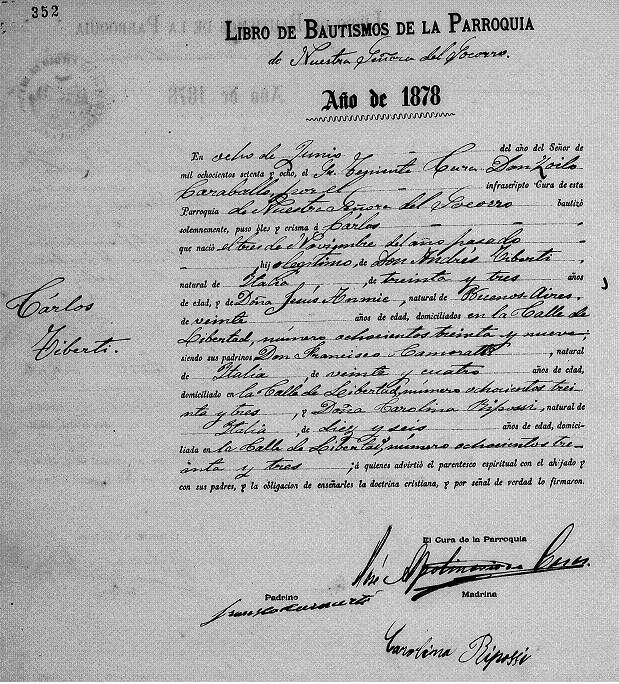 352
LIBRO DE BAUTISMOS DE LA PARROQUIA
de Nuestra Señora del Socorro.
Año de 1878
En ocho de Junio del año del Señor de
mil ochocientos setenta y ocho, el Sr. Teniente Cura Don Zoilo
Caraballo, por el infrascripto Cura de esta
Parroquia de Nuestra Señora del Socorro bautizó
solemnemente, puso óles y crisma á Cárlos
que nació el tres de Noviembre del año pasado
hijo legítimo, de Don Andrés Tiberti
natural de Italia, de treinta y tres años
de edad, y de Doña Jesús, natural de Buenos-Aires,
de veinte años de edad, domiciliados en la Calle de
Libertad, número ochocientos treinta y nueve;
siendo sus padrinos Don Francisco, natural
de Italia, de veinte y cuatro años de edad,
domiciliado en la Calle de Libertad, número ochocientos trei-
nta y tres, y Doña Carolina Ripossi, natural de
Italia, de diez y seis años de edad, domici-
liada en la Calle de Libertad, número ochocientos tre-
inta y tres; á quienes advirtió el parentesco espiritual con el ahijado y
con sus padres, y la obligacion de enseñarles la doctrina cristiana, y por señal de verdad lo firmaron.
Cárlos
Tiberti.
El Cura de la Parroquia
José Apolinario de Casas
Padrino
Madrina
Carolina Ripossi